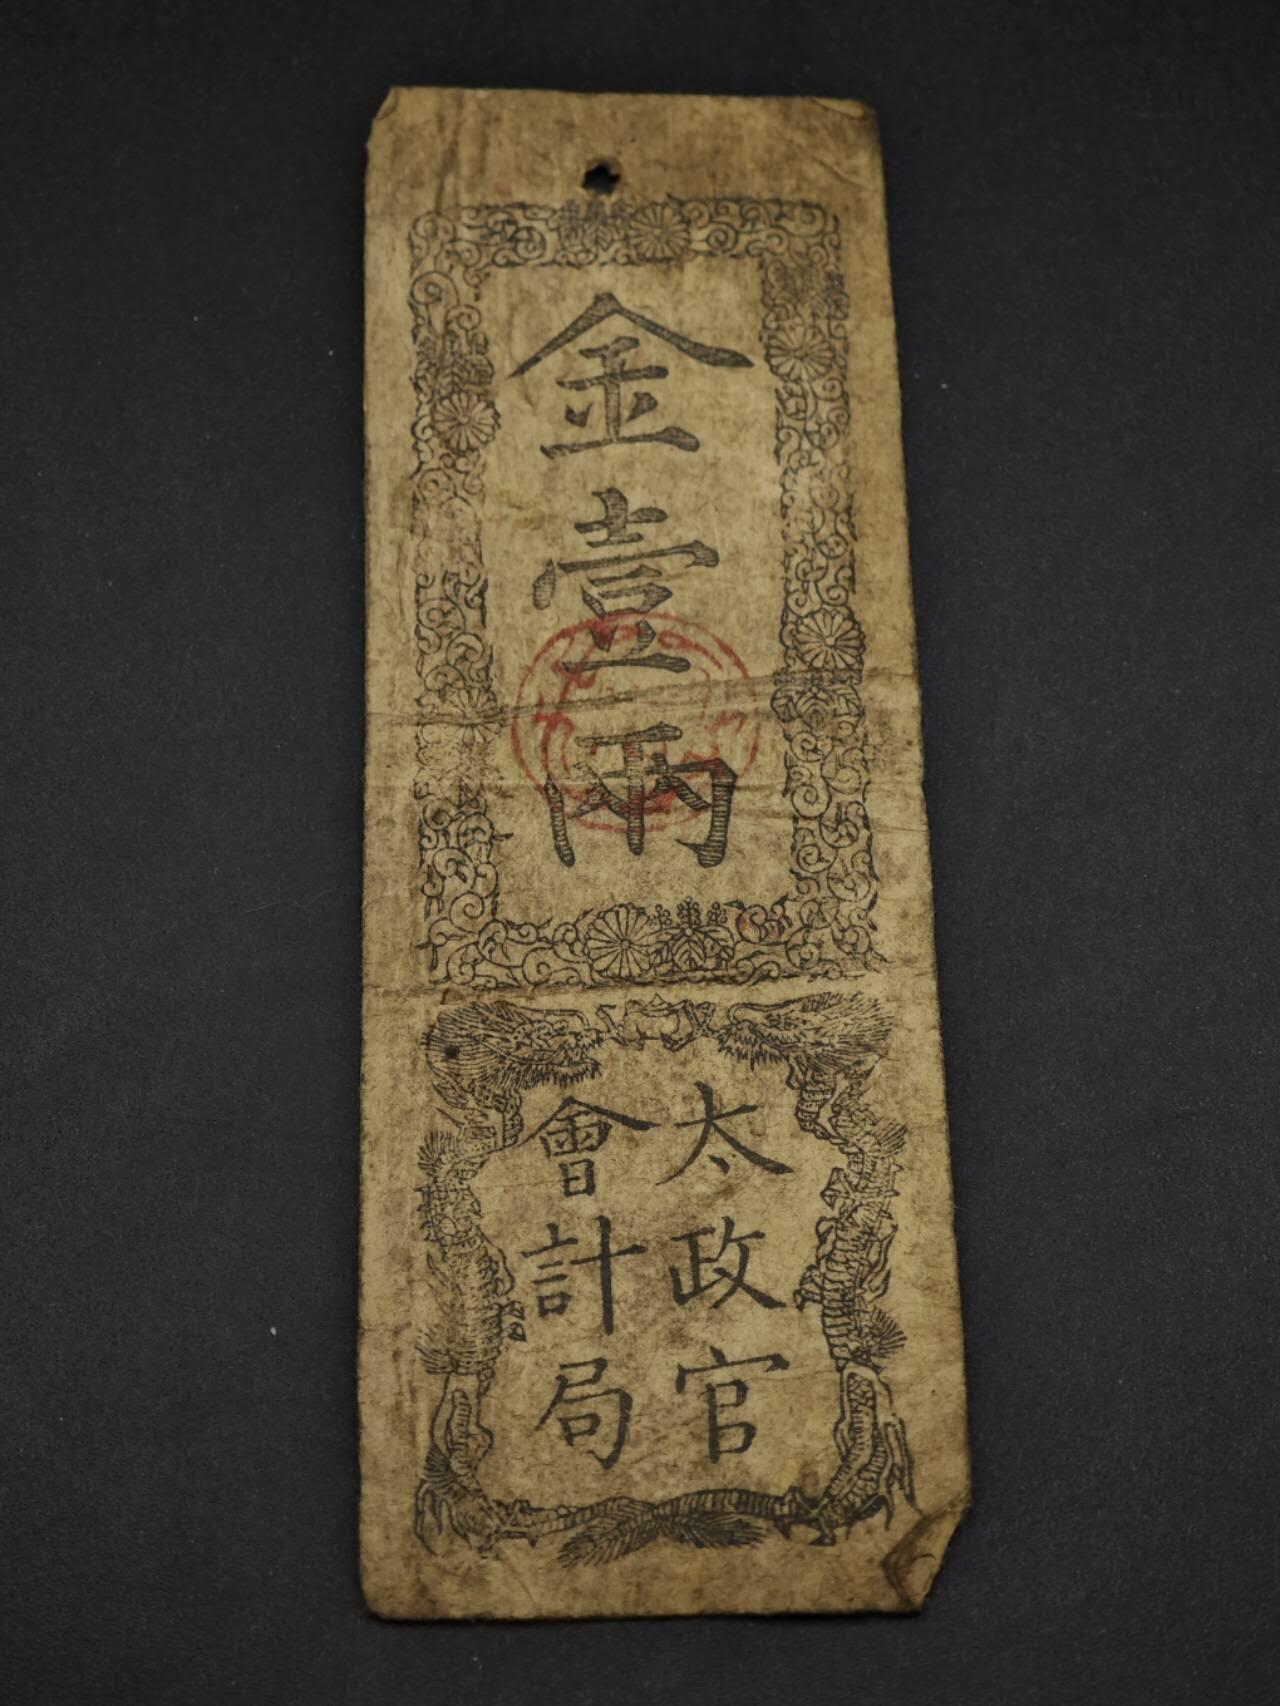 金壹兩
太政官
會計局